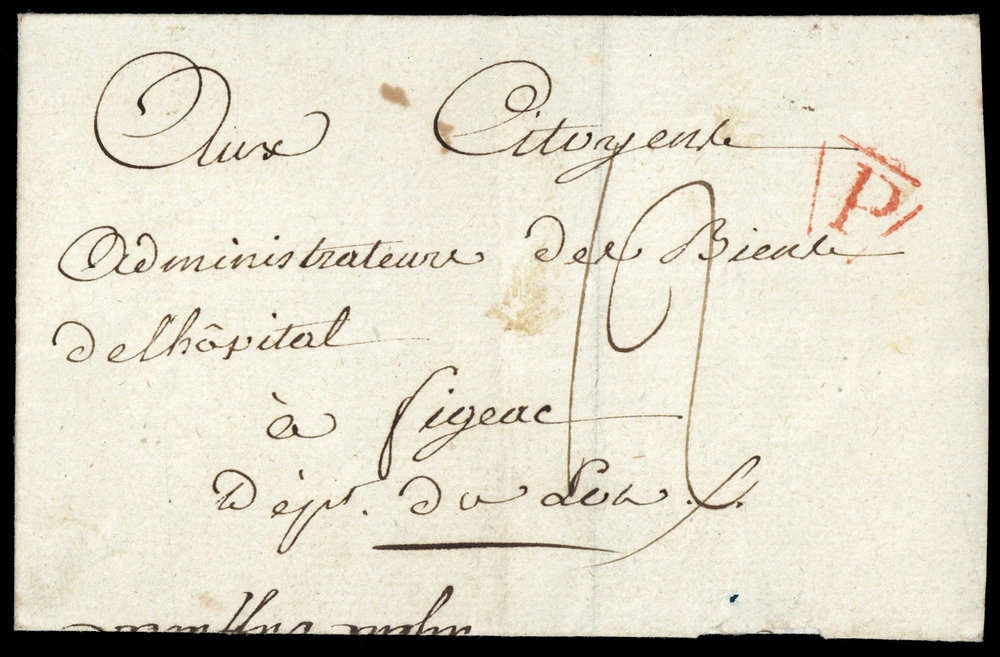 Aux Citoyens
P
Administrateurs des Biens
de l'hôpital
à Figeac
Dépt. du Lot